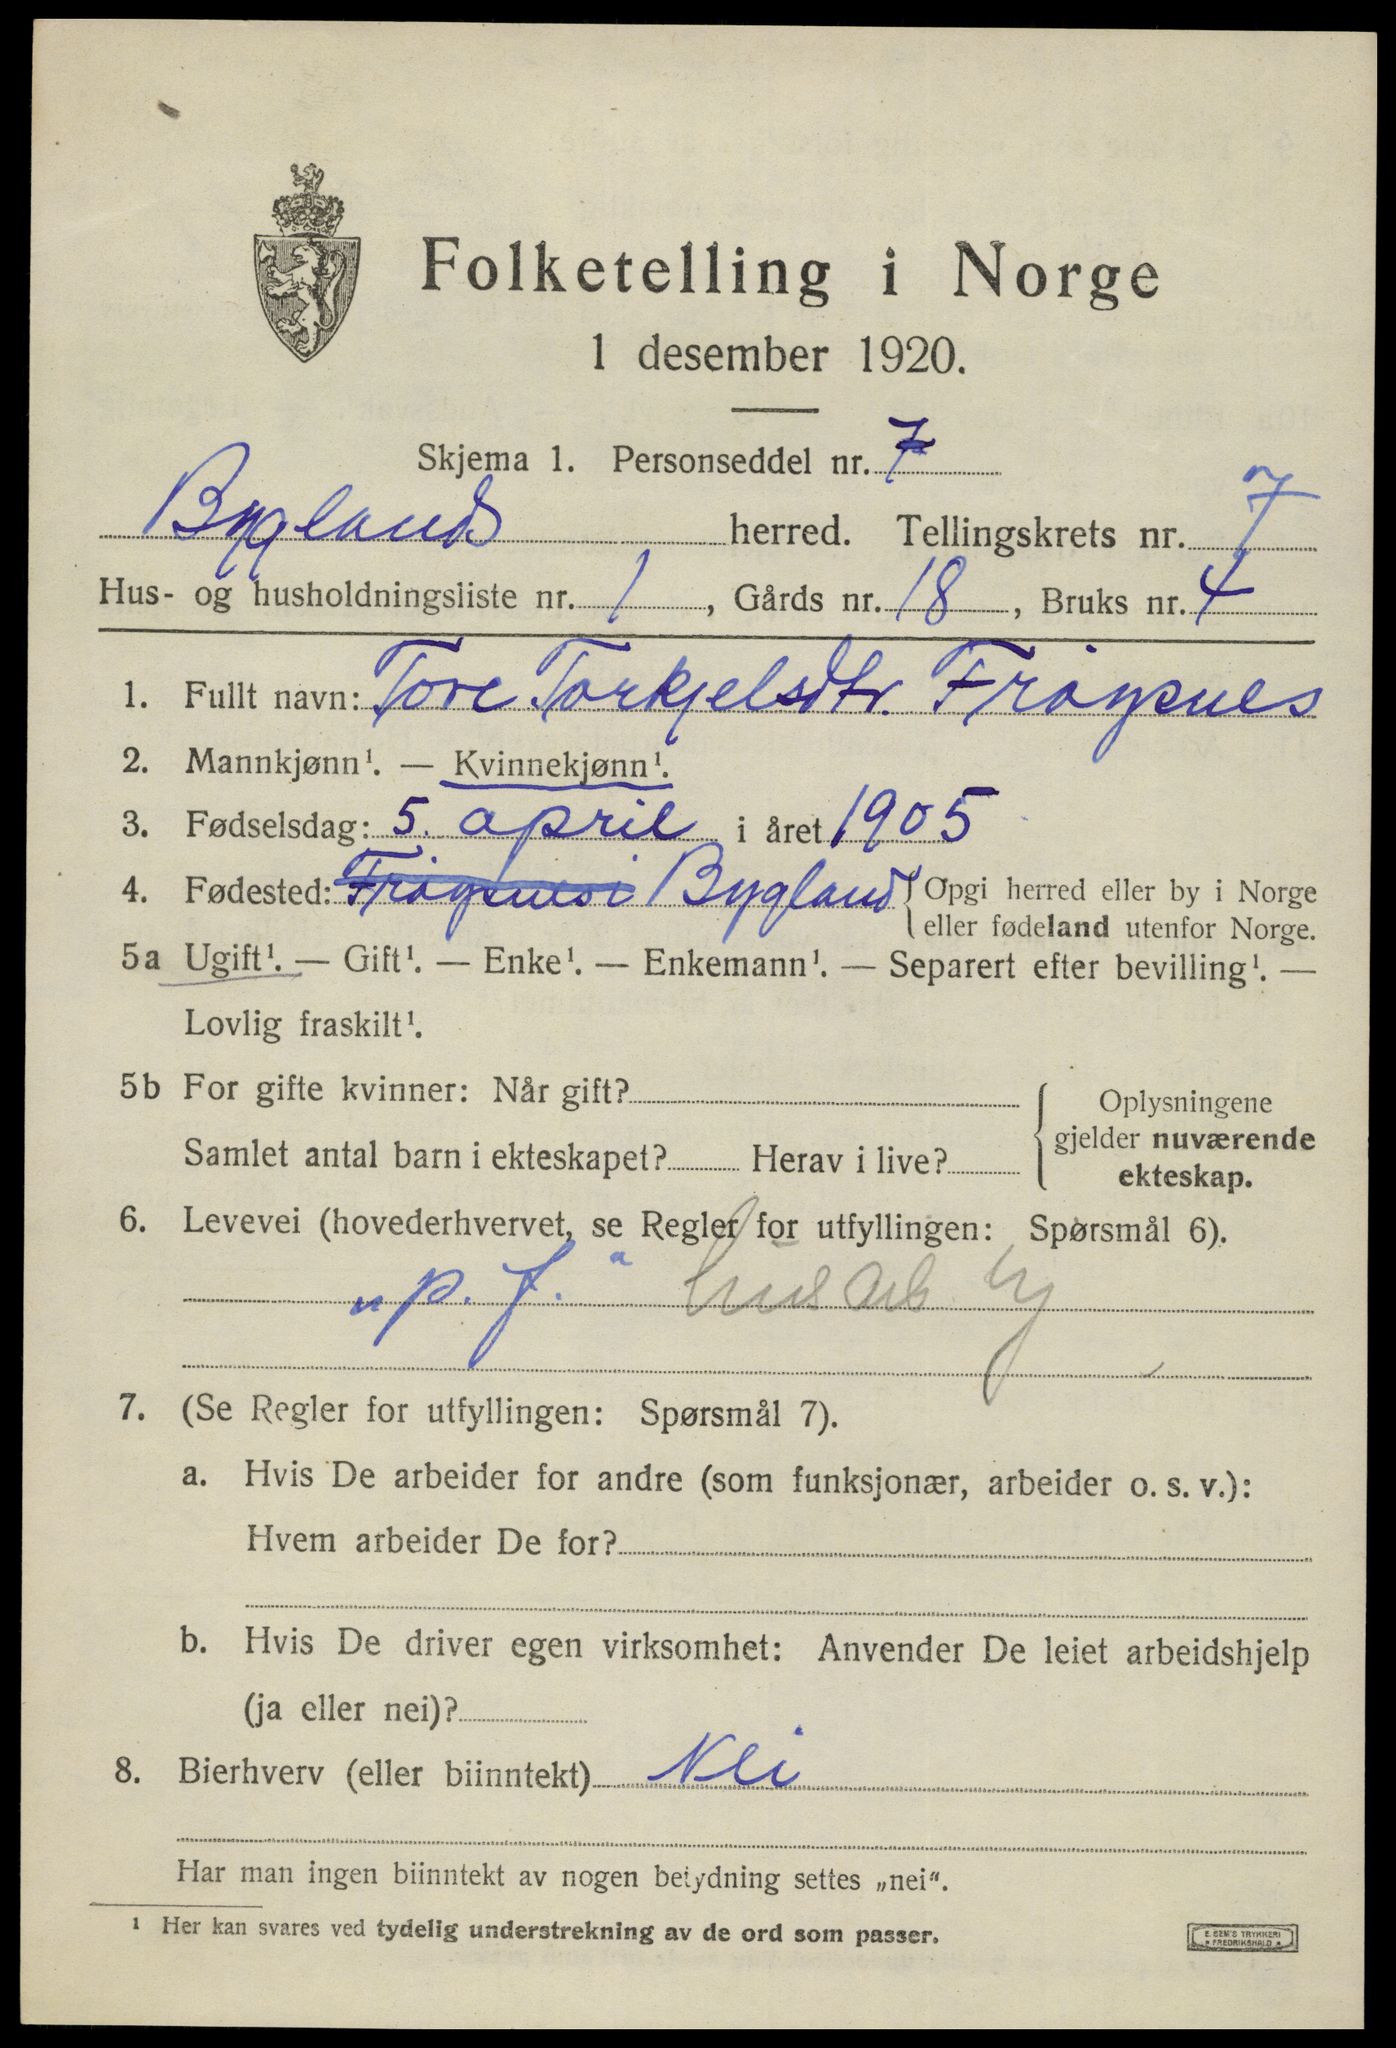 Folketelling i Norge
1 desember 1920.
Skjema 1. Personseddel nr. 7
Bygland herred. Tellingskrets nr. 7
Hus- og husholdningsliste nr. 1, Gårds nr. 18, Bruks nr. 4
1. Fullt navn: Tore Torkjelsdtr. Frøysnes
2. Mannkjønn¹. — Kvinnekjønn¹.
3. Fødselsdag: 5. april i året 1905
4. Fødested: Frøysnes i Bygland { Opgi herred eller by i Norge
eller fødeland utenfor Norge.
5a Ugift¹. — Gift¹. — Enke¹. — Enkemann¹. — Separert efter bevilling¹. —
Lovlig fraskilt¹.
5b For gifte kvinner: Når gift?
Samlet antal barn i ekteskapet? Herav i live?
Oplysningene
gjelder nuværende
ekteskap.
6. Levevei (hovederhvervet, se Regler for utfyllingen: Spørsmål 6).
„p. f.“
7. (Se Regler for utfyllingen: Spørsmål 7).
a. Hvis De arbeider for andre (som funksjonær, arbeider o. s. v.):
Hvem arbeider De for?
b. Hvis De driver egen virksomhet: Anvender De leiet arbeidshjelp
(ja eller nei)?
8. Bierhverv (eller biinntekt) Nei
Har man ingen biinntekt av nogen betydning settes „nei“.
¹ Her kan svares ved tydelig understrekning av de ord som passer.
E. SEM'S TRYKKERI
FREDRIKSHALD